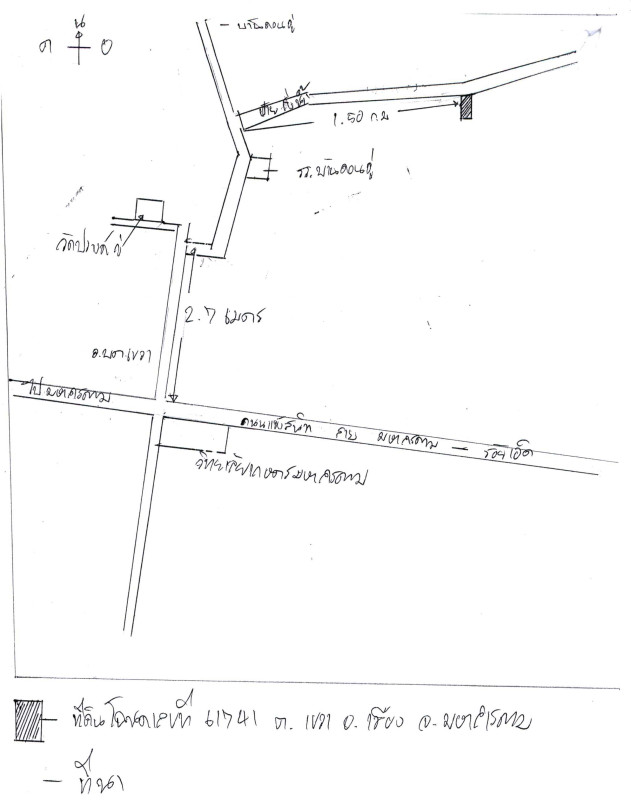 น
ต
อ
บ้านดอนดู่
1.50 กม
รร.บ้านดอนดู่
2.7 เมตร
ไป มหาสารคาม
ถนนแจ้งสนิท สาย มหาสารคาม - ร้อยเอ็ด
วิทยาลัยเกษตรมหาสารคาม
ที่ดินโฉนดเลขที่ 61741 ต. เขวา อ. เมือง จ. มหาสารคาม
- ที่นา